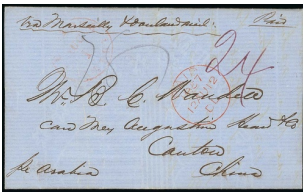 via Marseilles & overland mail. Paid
24
Mr. B. C.
care Mess Augustine Heard & Co
Canton
China
pr Arabia